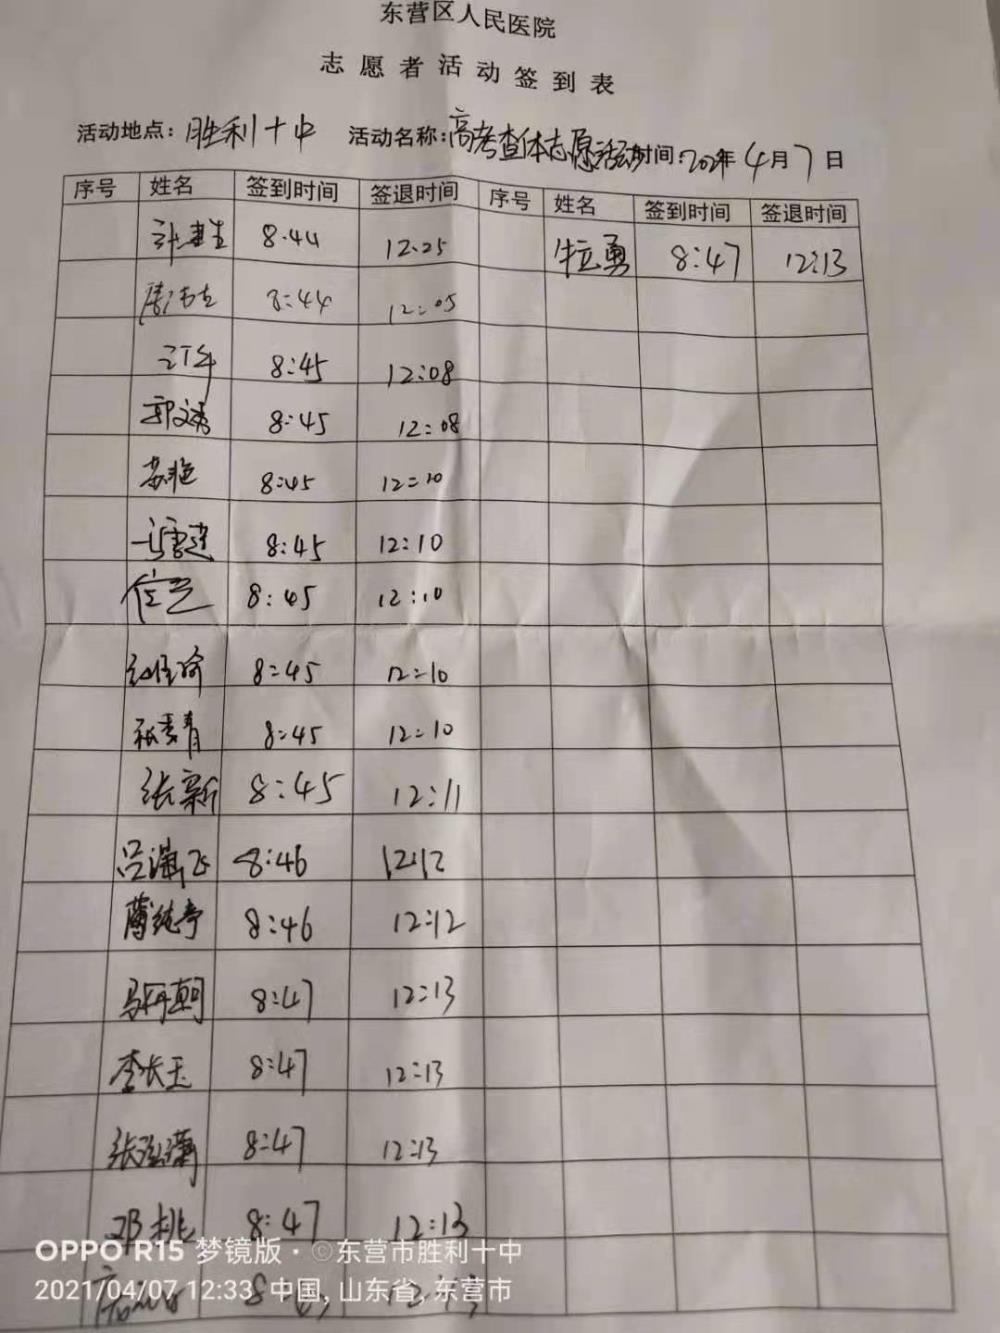 东营区人民医院
志愿者活动签到表
活动地点：胜利十中 活动名称：高考查体志愿活动 时间：2021年4月7日
序号 姓名 签到时间 签退时间 序号 姓名 签到时间 签退时间
8:44 12:25 牛立勇 8:47 12:13
8:44 12:05
8:45 12:08
郭文秀 8:45 12:08
苏艳 8:45 12:10
8:45 12:10
8:45 12:10
8:45 12:10
张秀青 8:45 12:10
张新 8:45 12:11
吕潇飞 8:46 12:12
8:46 12:12
8:47 12:13
李长玉 8:47 12:13
8:47 12:13
邓桃 8:47 12:13
OPPO R15 梦镜版·©东营市胜利十中
2021/04/07 12:33 中国, 山东省, 东营市